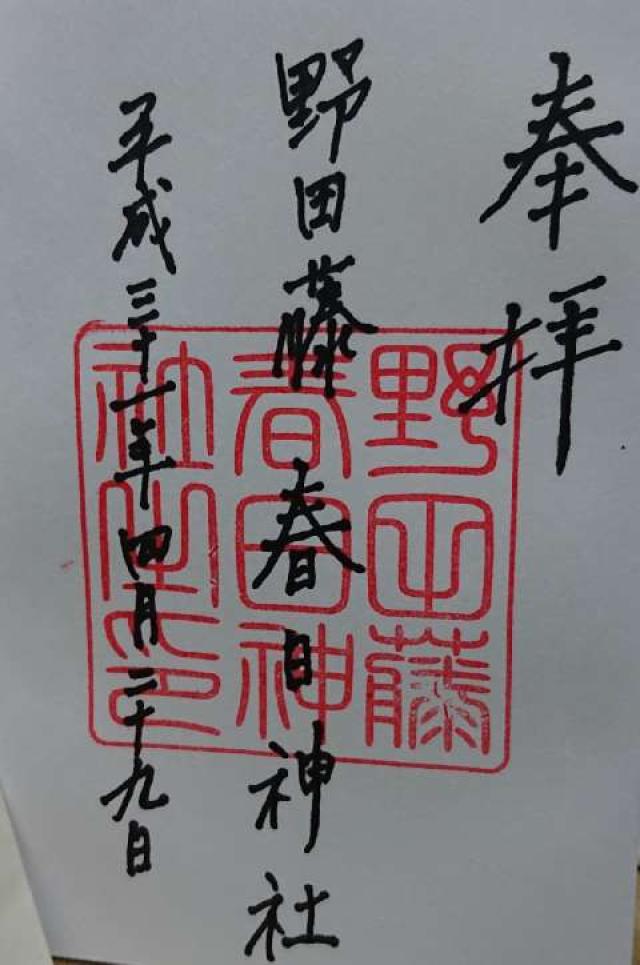 奉拝
野田藤春日神社
平成三十一年四月二十九日
野田藤
春日神
社之印